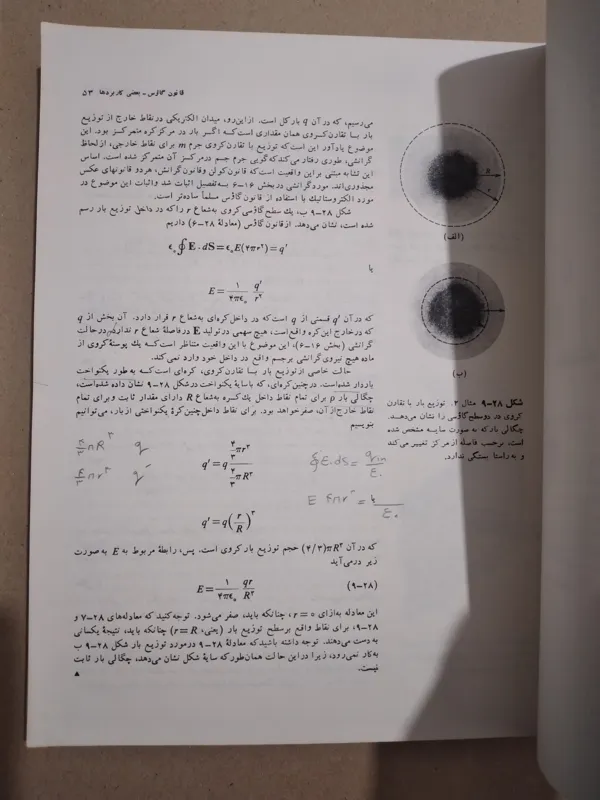 قانون گاؤس ـ بعضی کاربردها ۵۳
می‌رسیم، که در آن q بار کل است. از این‌رو، میدان الکتریکی در نقاط خارج از توزیع
بار با تقارن کروی همان مقداری است که اگر بار در مرکز کره متمرکز بود. این
موضوع یادآور این است که توزیع با تقارن کروی جرم m برای نقاط خارجی، از لحاظ
گرانشی، طوری رفتار می‌کند که گویی جرم جسم در مرکز آن متمرکز شده است. اساس
این تشابه مبتنی بر این واقعیت است که قانون کولن و قانون گرانش، هر دو قانونهای عکس
مجذوری‌اند. مورد گرانشی در بخش ۱۶-۶ به تفصیل اثبات شد و اثبات این موضوع در
مورد الکتروستاتیک با استفاده از قانون گاؤس مسلماً ساده‌تر است.
شکل ۲۸-۹ ب، یک سطح گاؤسی کروی به شعاع r را که در داخل توزیع بار رسم
شده است، نشان می‌دهد. از قانون گاؤس (معادلهٔ ۲۸-۶) داریم
ϵ₀∮E·dS=ϵ₀E(۴πr²)=q′
یا
E = ۱/۴πϵ₀ q′/r²
که در آن q′ قسمتی از q است که در داخل کره‌ای به شعاع r قرار دارد. آن بخش از q
که در خارج این کره واقع است، هیچ سهمی در تولید E در فاصلهٔ شعاع r ندارد. در حالت
گرانشی (بخش ۱۶-۶)، این موضوع با این واقعیت متناظر است که یک پوستهٔ کروی از
ماده هیچ نیروی گرانشی بر جسم واقع در داخل خود وارد نمی‌کند.
حالت خاصی از توزیع بار با تقارن کروی، کره‌ای است که به طور یکنواخت
باردار شده است. در چنین کره‌ای، که با سایهٔ یکنواخت در شکل ۲۸-۹ نشان داده شده است،
چگالی بار ρ برای تمام نقاط داخل یک کره به شعاع R دارای مقدار ثابت و برای تمام
نقاط خارج از آن، صفر خواهد بود. برای نقاط داخل چنین کرهٔ یکنواختی از بار، می‌توانیم
بنویسیم
q′=q (۴/۳ πr³)/(۴/۳ πR³)
۴/۳ πR³ q
۴/۳ πr³ q′
∮E.ds = qin/ε₀
q′=q(r/R)³
که در آن (۴/۳)πR³ حجم توزیع بار کروی است. پس، رابطهٔ مربوط به E به صورت
زیر درمی‌آید
E = ۱/۴πϵ₀ qr/R³ (۲۸-۹)
این معادله به ازای r=۰، چنانکه باید، صفر می‌شود. توجه کنید که معادله‌های ۲۸-۷ و
۲۸-۹، برای نقاط واقع بر سطح توزیع بار (یعنی، r=R) چنانکه باید، نتیجهٔ یکسانی
به دست می‌دهند. توجه داشته باشید که معادلهٔ ۲۸-۹ در مورد توزیع بار شکل ۲۸-۹ ب
به کار نمی‌رود، زیرا در این حالت همان‌طور که سایهٔ شکل نشان می‌دهد، چگالی بار ثابت
نیست.
R
r
(الف)
(ب)
شکل ۲۸-۹ مثال ۲. توزیع بار با تقارن
کروی در دو سطح گاؤسی را نشان می‌دهد.
چگالی بار که به صورت سایه مشخص شده
است، برحسب فاصله از مرکز تغییر می‌کند
و به راستا بستگی ندارد.